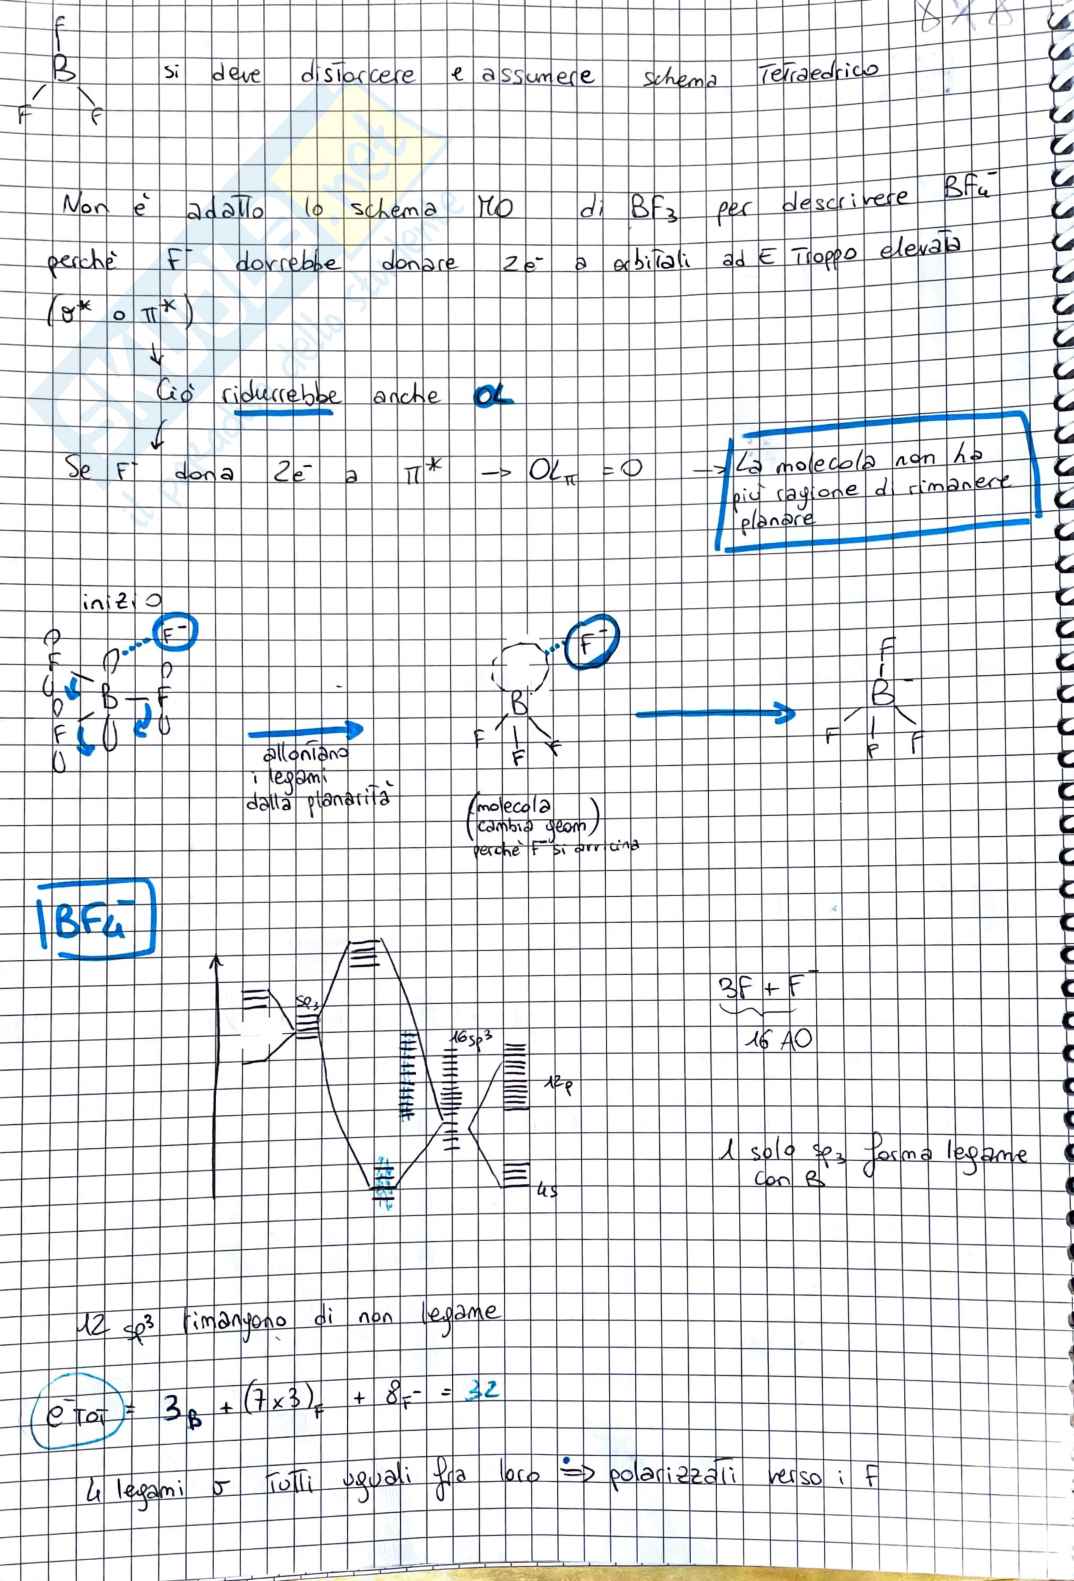 F
B si deve distorcere e assumere schema Tetraedrico
F F
Non è adatto lo schema MO di BF3 per descrivere BF4-
perchè F- dovrebbe donare 2e- a orbitali ad E troppo elevata
(σ* o π*)
↓
Ciò ridurrebbe anche OL
↓
Se F- dona 2e- a π* → OLπ = 0 → La molecola non ha
più ragione di rimanere
planare
inizio
F-
F
B F
F
allontano
i legami
dalla planarità
F-
B
F F F
(molecola
cambia geom)
perchè F- si avvicina
F
B-
F F F
BF4-
3F + F-
16 AO
sp3
16sp3
12p
4s
1 solo sp3 forma legame
con B
12 sp3 rimangono di non legame
e-TOT = 3B + (7x3)F + 8F- = 32
4 legami σ tutti uguali fra loro ⇒ polarizzati verso i F